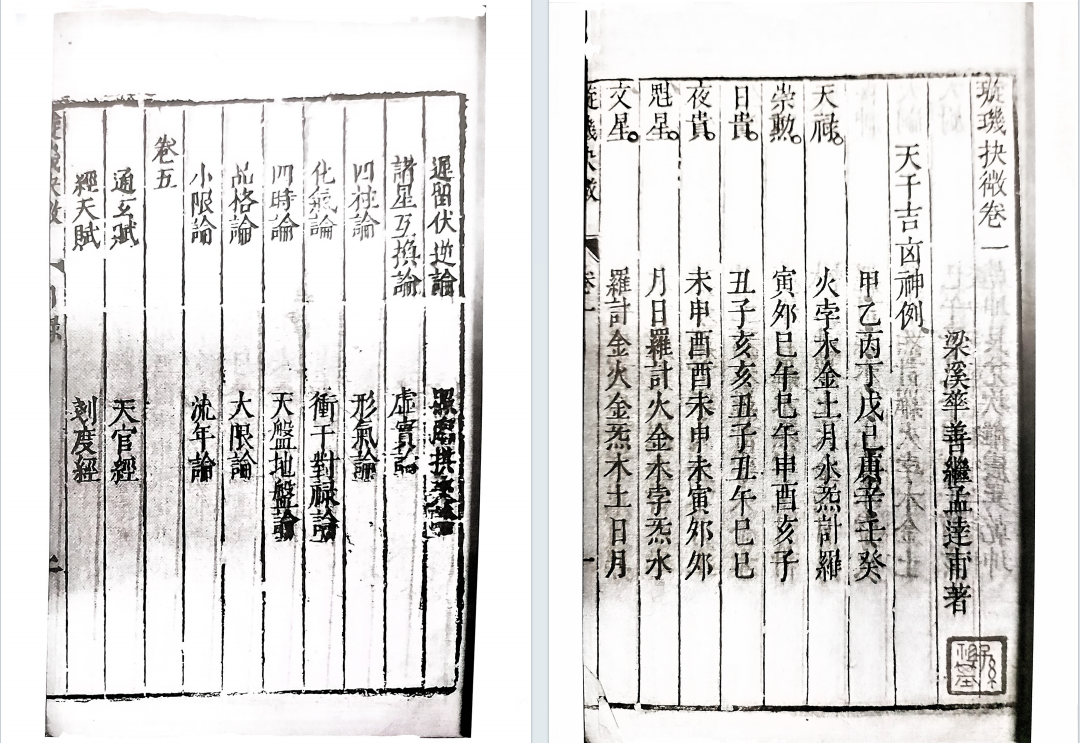 遲留伏逆論 照
諸星互換論 虛實論
四柱論 形氣論
化氣論 衝干對祿論
四時論 天盤地盤論
品格論 大限論
小限論 流年論
卷五
通玄賦 天官經
經天賦 刻度經
璇璣抉微卷一
梁溪華善繼孟達甫著
天干吉凶神例
甲乙丙丁戊己庚辛壬癸
天祿。 火孛木金土月水炁計羅
崇勲。 寅夘巳午巳午申酉亥子
日貴。 丑子亥亥丑子丑午巳巳
夜貴。 未申酉酉未申未寅夘夘
魁星。 月日羅計火金木孛炁水
文星。 羅計金火金炁木土日月